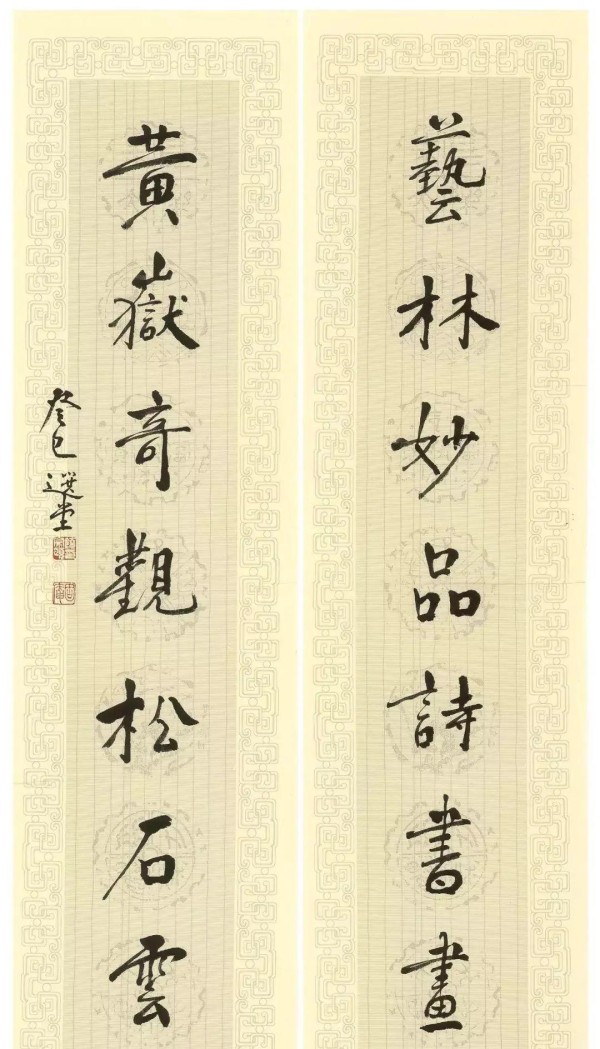 藝林妙品詩書畫
黃嶽奇觀松石雲
癸巳 選堂